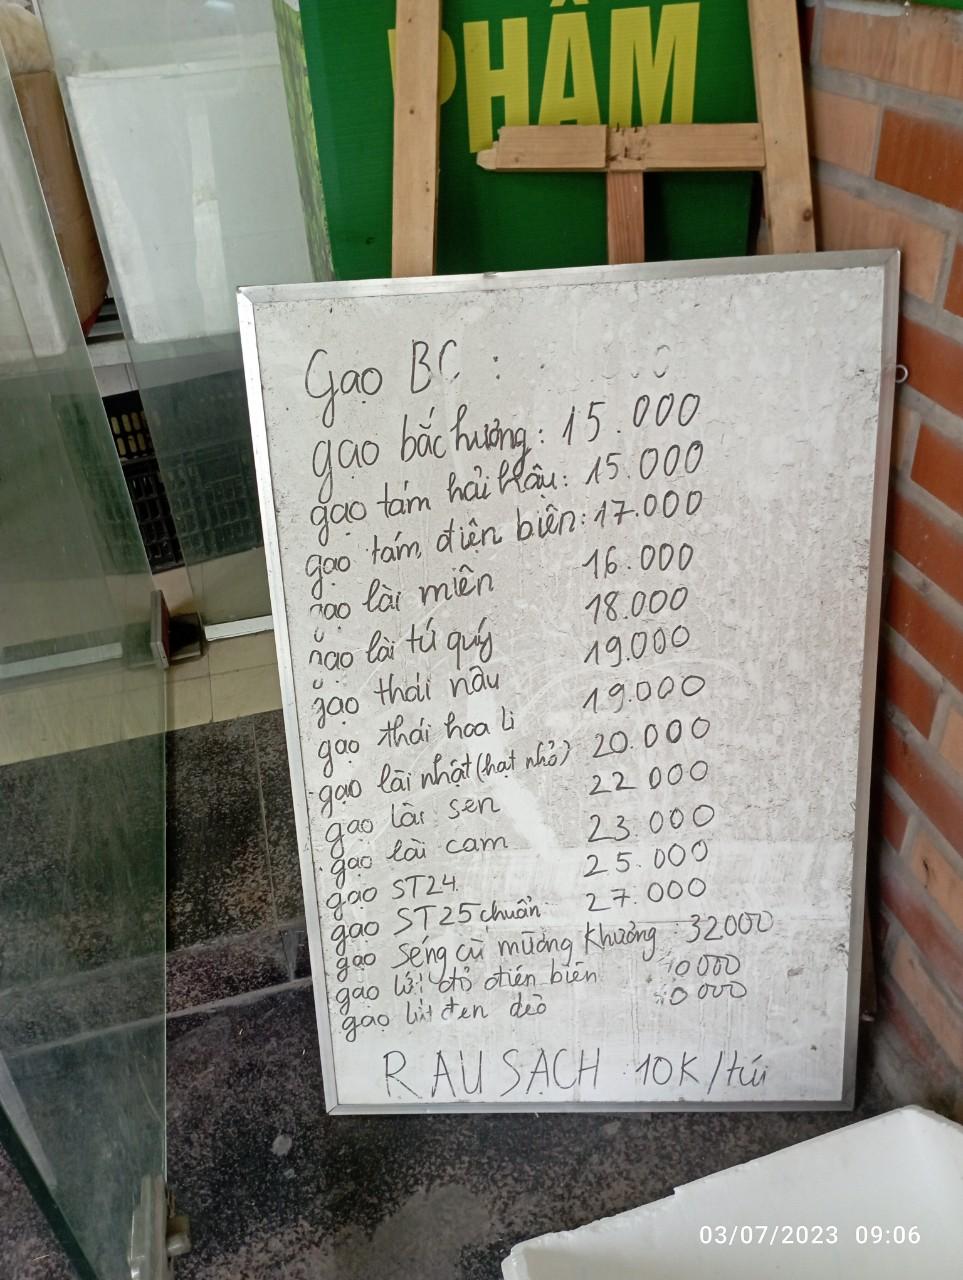 PHẨM
Gạo BC :
gạo bắc hương: 15.000
gạo tám hải hậu: 15.000
gạo tám điện biên: 17.000
gạo lài miên 16.000
gạo lài tứ quý 18.000
gạo thái nâu 19.000
gạo thái hoa li 19.000
gạo lài nhật (hạt nhỏ) 20.000
gạo lài sen 22 000
gạo lài cam 23.000
gạo ST24 25.000
gạo ST25 chuẩn 27.000
gạo séng cù mường khương : 32000
gạo lứt đỏ điện biên
gạo lứt đen dẻo
RAU SẠCH 10K/túi
03/07/2023 09:06